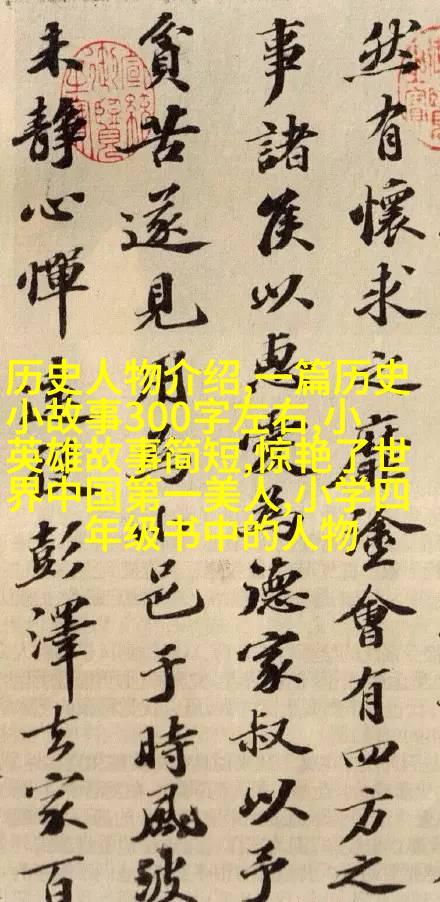 然有懷求之靡會有四方之
事諸侯以惠愛為德家叔以予
貧苦遂見用為小邑于時風波
未靜心憚遠彭澤去家百
历史人物介绍,一篇历史
小故事300字左右,小
英雄故事简短,惊艳了世
界中国第一美人,小学四
年级书中的人物